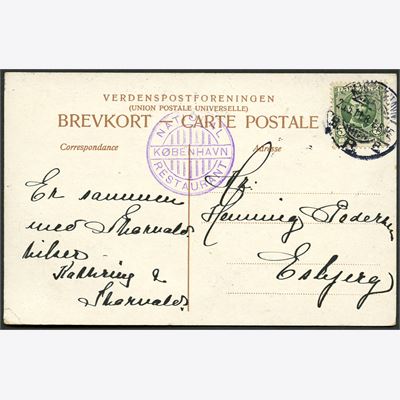 VERDENSPOSTFORENINGEN
(UNION POSTALE UNIVERSELLE)
BREVKORT - CARTE POSTALE
Correspondance
Adresse
NATIONAL
KØBENHAVN
RESTAURANT
Er sammen
med Thorvald
hilser
Kathrine &
Thorvald
Hr.
Henning Pedersen
Esbjerg